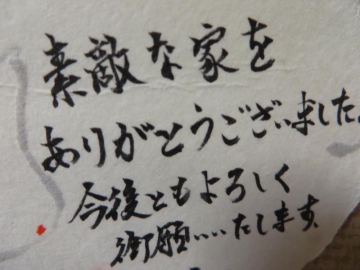 素敵な家を
ありがとうございました。
今後ともよろしく
御願いいたします。